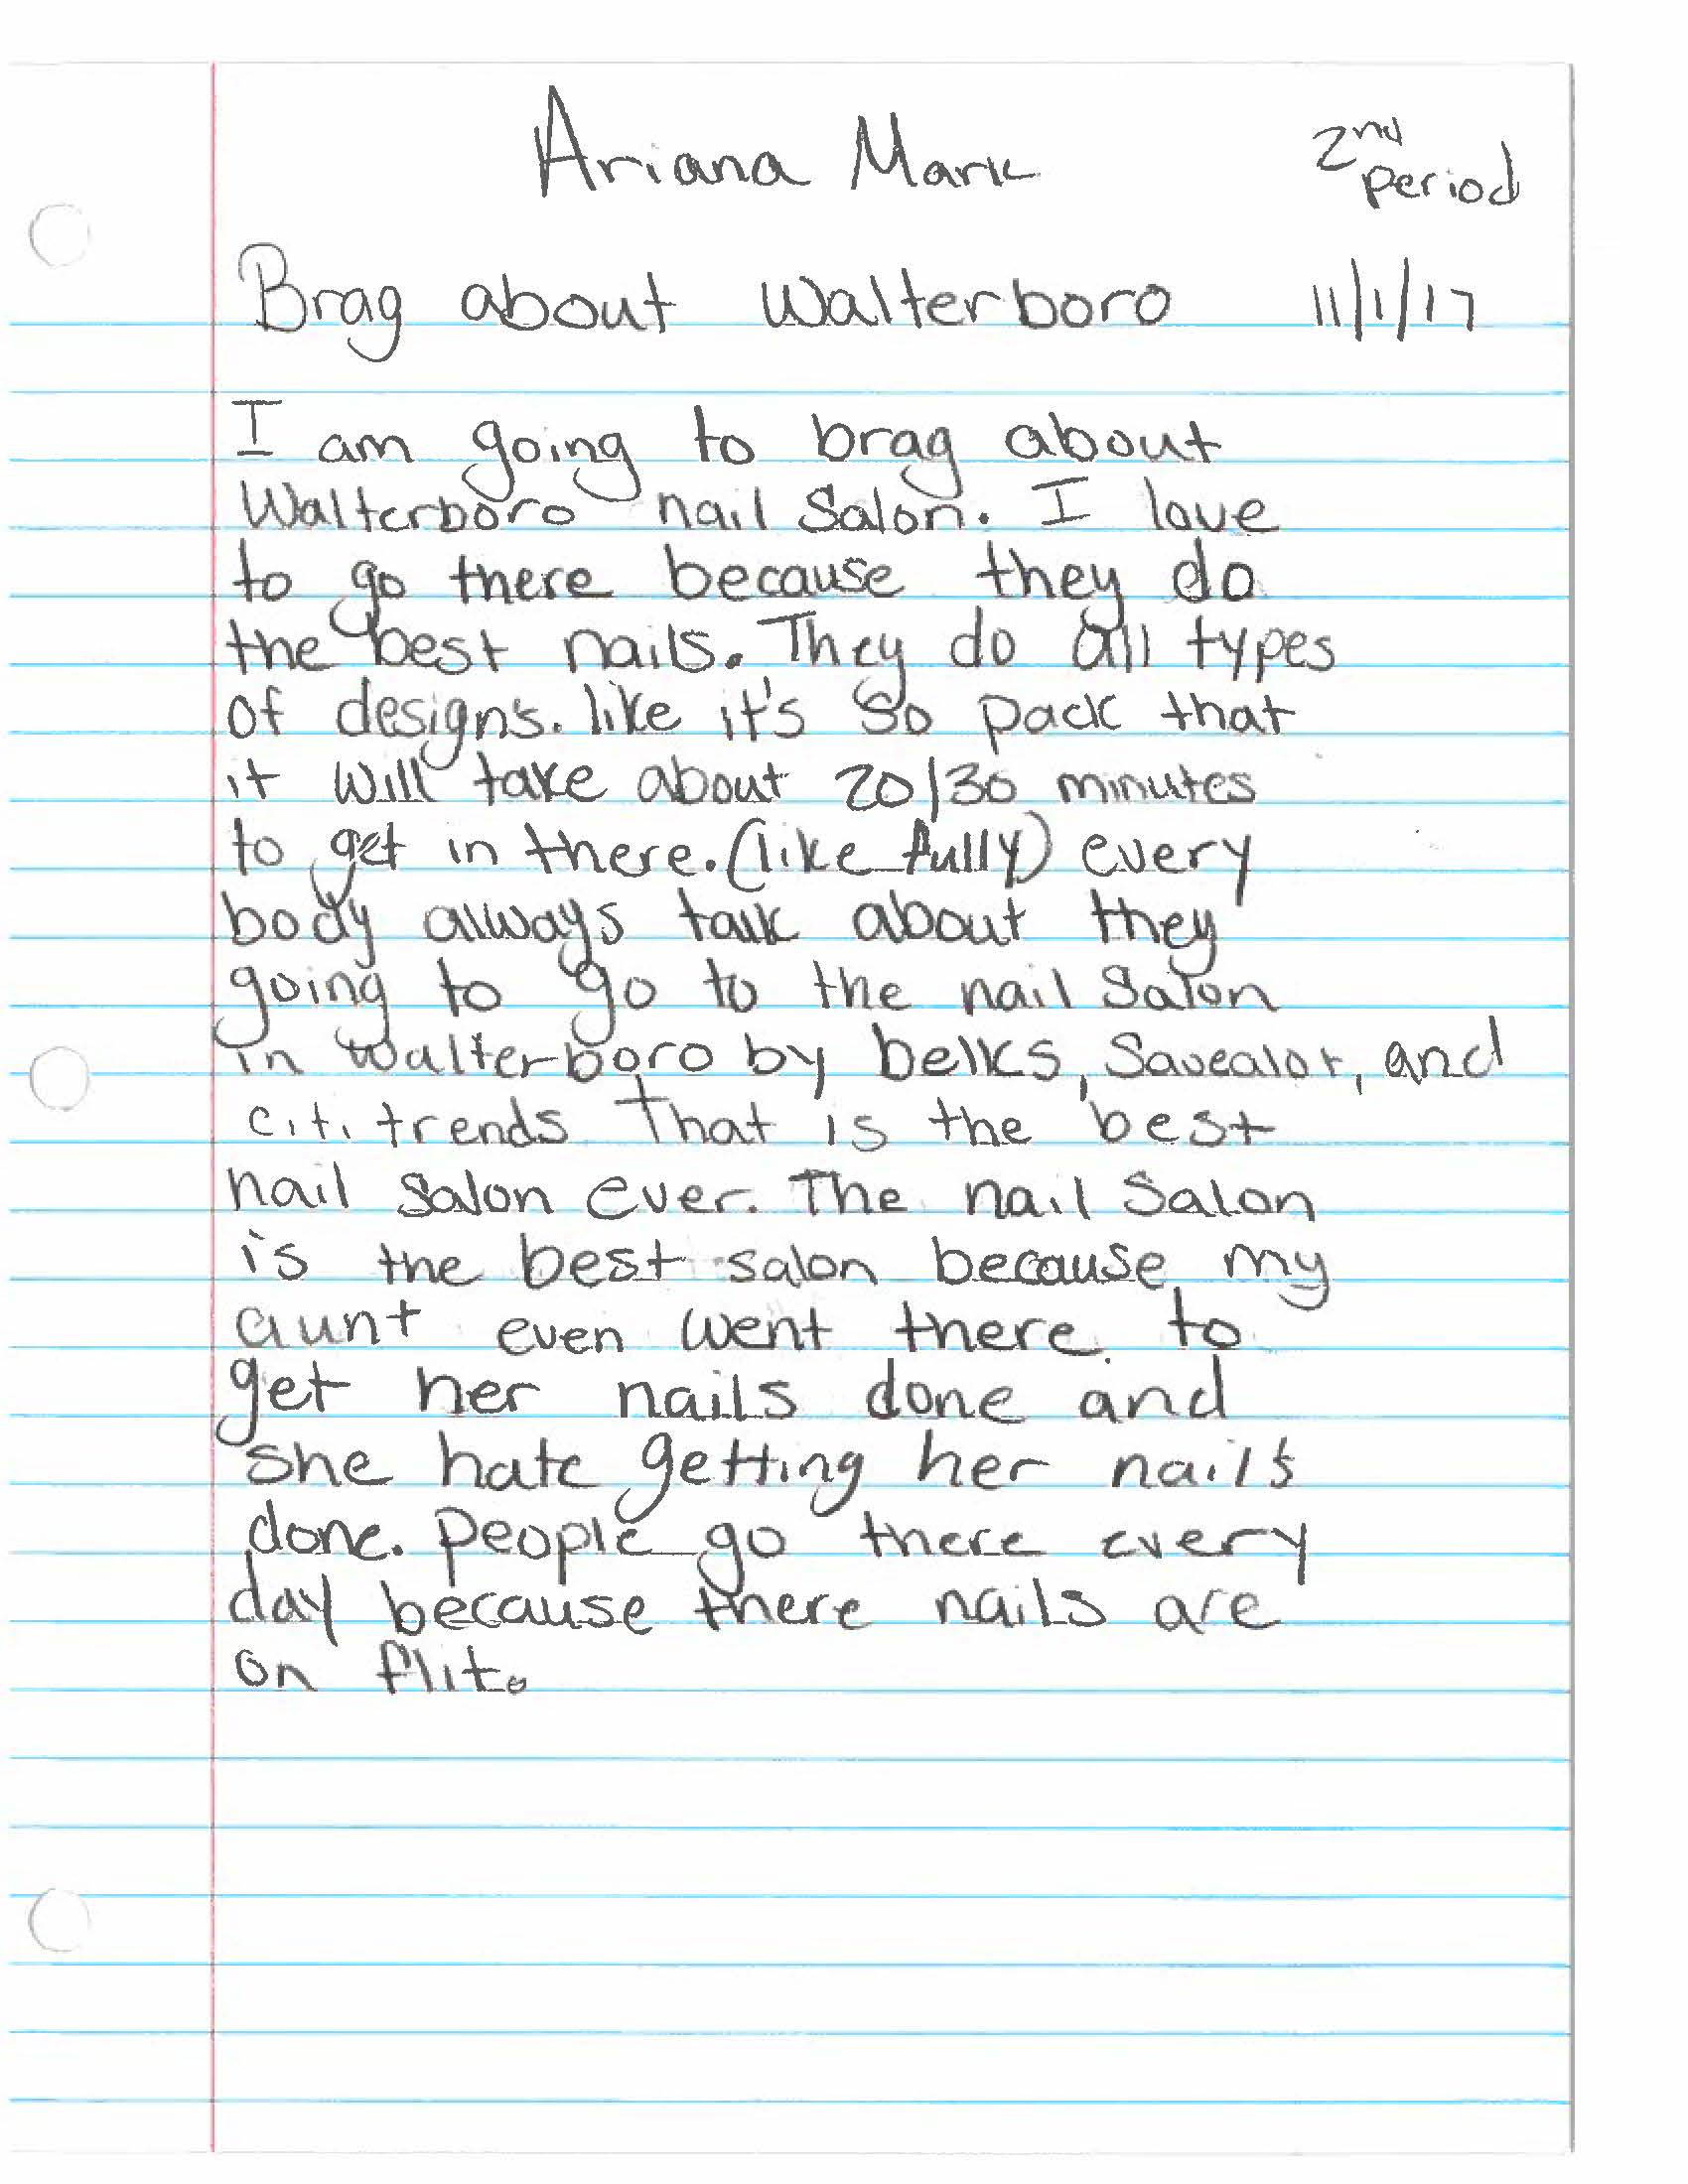 Ariana Mark 2nd period
Brag about Walterboro 11/1/17
I am going to brag about
Walterboro nail Salon. I love
to go there because they do
the best nails. They do all types
of designs. like it's so pack that
it will take about 20/30 minutes
to get in there. (like fully) every
body always talk about they
going to go to the nail Salon
in Walterboro by belks, Savealot, and
citi trends That is the best
nail salon ever. The nail Salon
is the best salon because my
aunt even went there to
get her nails done and
she hate getting her nails
done. People go there every
day because there nails are
on flit.